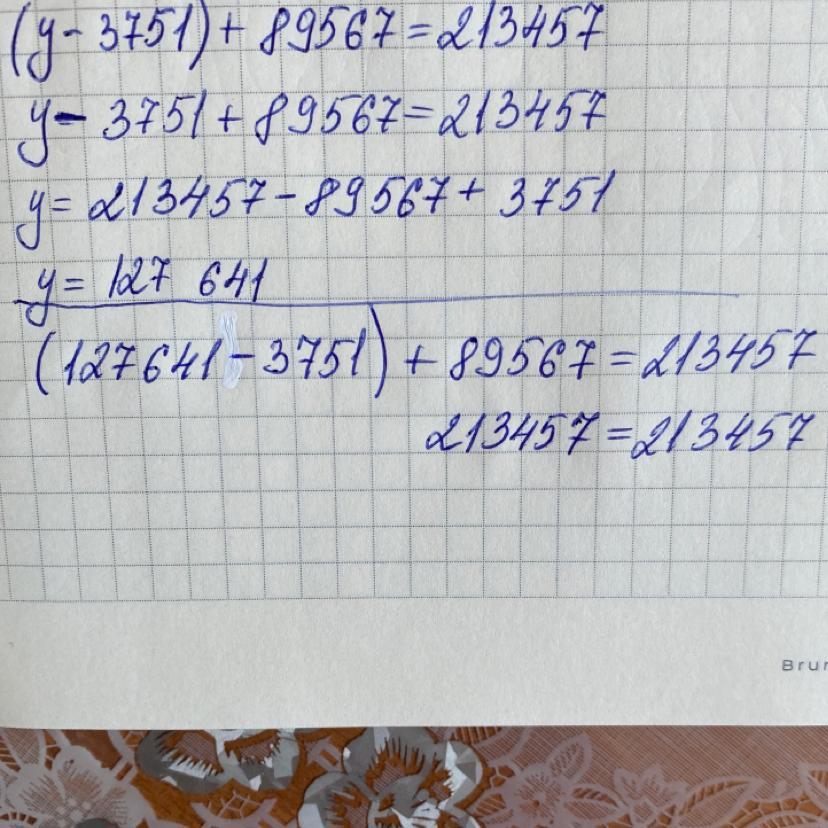 (y - 3751) + 89567 = 213457
y - 3751 + 89567 = 213457
y = 213457 - 89567 + 3751
y = 127 641
(127641 - 3751) + 89567 = 213457
213457 = 213457